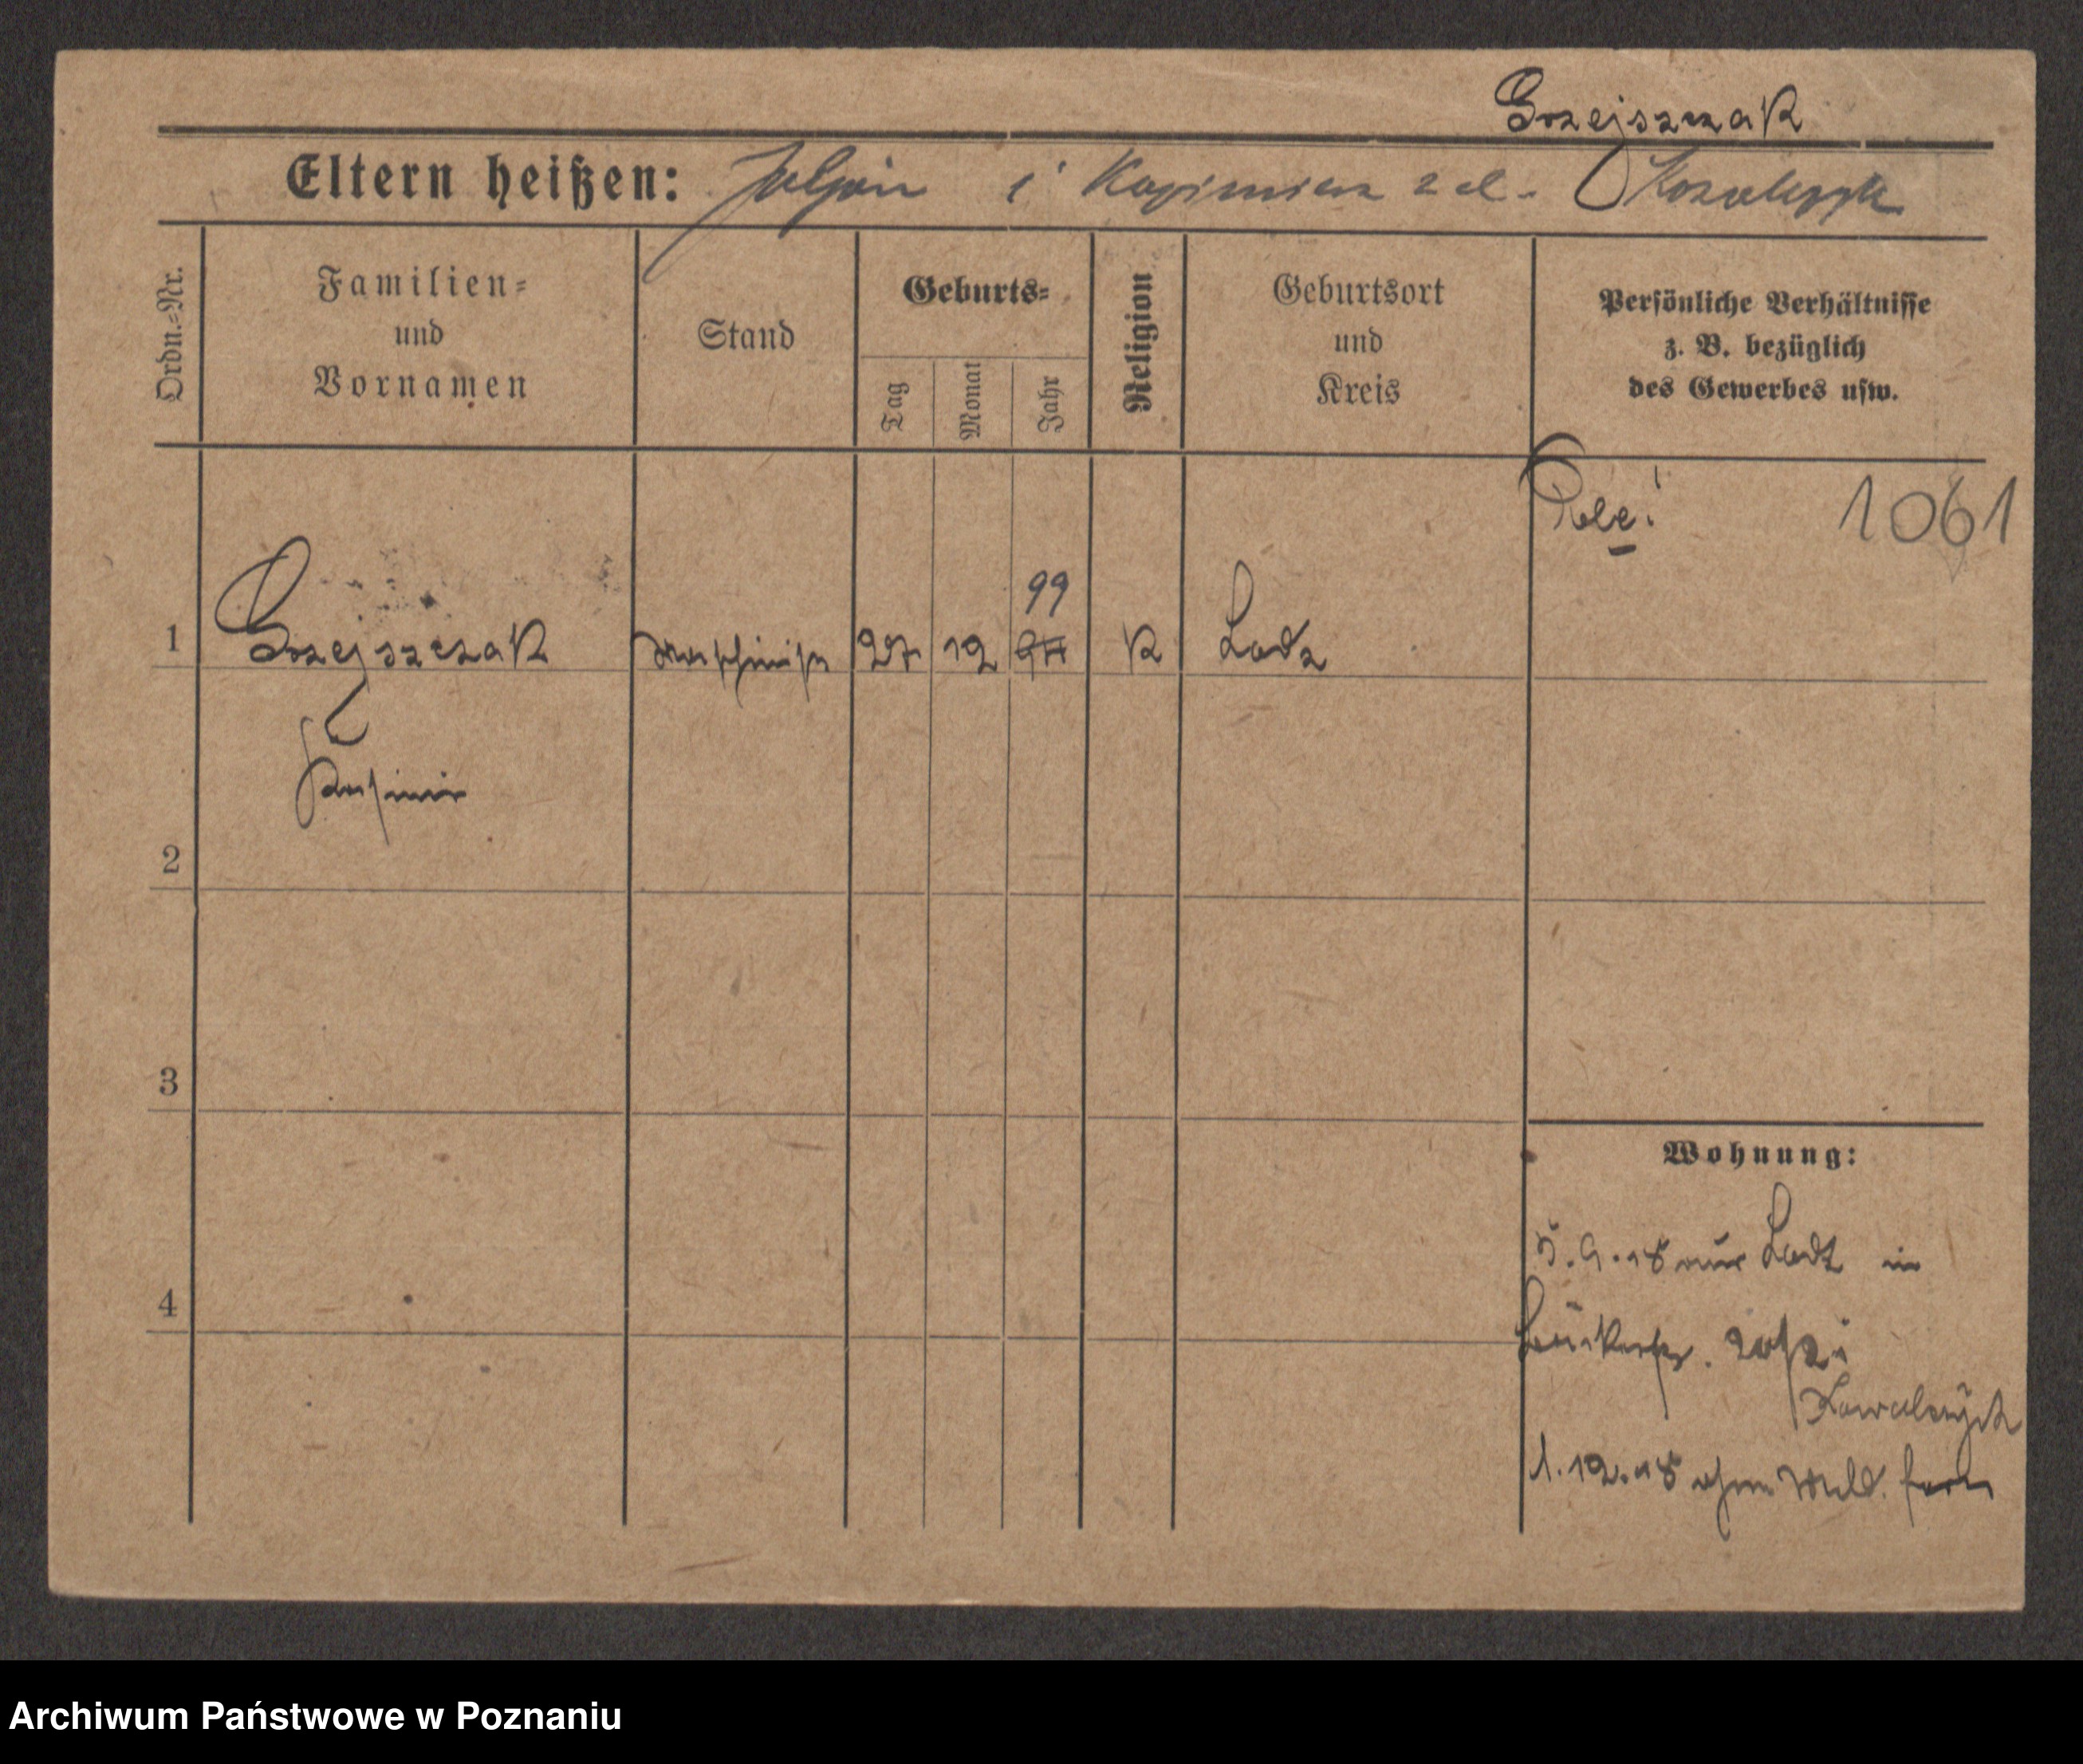 Grzejszczak
Eltern heißen: Juljan i Kazimiera zd. Kowalczyk
Ordn.=Nr.
Familien=
und
Vornamen
Stand
Geburts=
Tag
Monat
Jahr
Religion
Geburtsort
und
Kreis
Persönliche Verhältnisse
z. B. bezüglich
des Gewerbes usw.
Pole! 1061
99
1 Grzejszczak Maschinist 27 12 K Lodz
Kasimir
2
3
Wohnung:
5.9.18 aus Lodz in
4
20/21
Kowalczyk
1.12.18 ohne Meld. fort
Archiwum Państwowe w Poznaniu